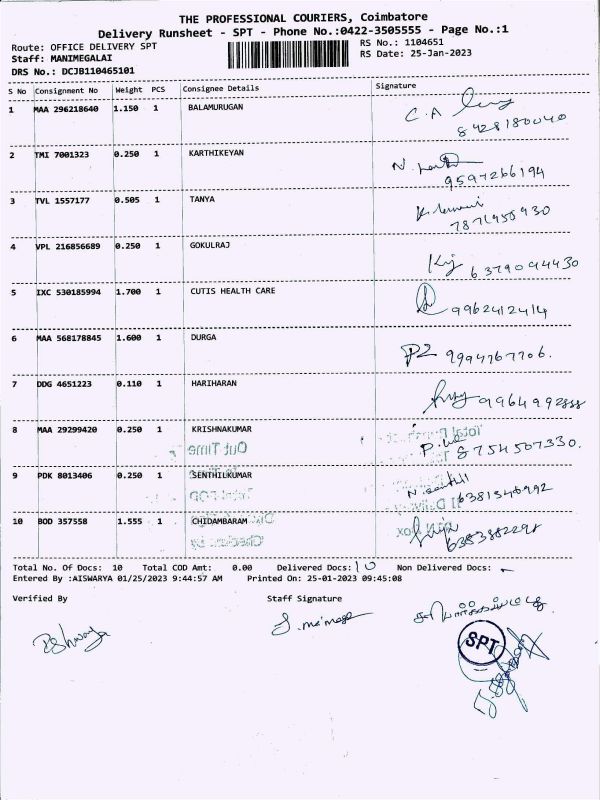 THE PROFESSIONAL COURIERS, Coimbatore
Delivery Runsheet - SPT - Phone No.:0422-3505555 - Page No.:1
Route: OFFICE DELIVERY SPT RS No.: 1104651
Staff: MANIMEGALAI RS Date: 25-Jan-2023
DRS No.: DCJB110465101
S No Consignment No Weight PCS Consignee Details Signature
1 MAA 296218640 1.150 1 BALAMURUGAN C.A
8428180040
2 TMI 7001323 0.250 1 KARTHIKEYAN
9597266194
3 TVL 1557177 0.505 1 TANYA
7871956930
4 VPL 216856689 0.250 1 GOKULRAJ
6379094430
5 IXC 530185994 1.700 1 CUTIS HEALTH CARE
9962412414
6 MAA 568178845 1.600 1 DURGA
9994767706.
7 DDG 4651223 0.110 1 HARIHARAN
8 MAA 29299420 0.250 1 KRISHNAKUMAR
8754507330.
Out Time
9 PDK 8013406 0.250 1 SENTHILKUMAR
6381546992
10 BOD 357558 1.555 1 CHIDAMBARAM
6383882298
Total No. Of Docs: 10 Total COD Amt: 0.00 Delivered Docs: 10 Non Delivered Docs: -
Entered By :AISWARYA 01/25/2023 9:44:57 AM Printed On: 25-01-2023 09:45:08
Verified By Staff Signature
SPT